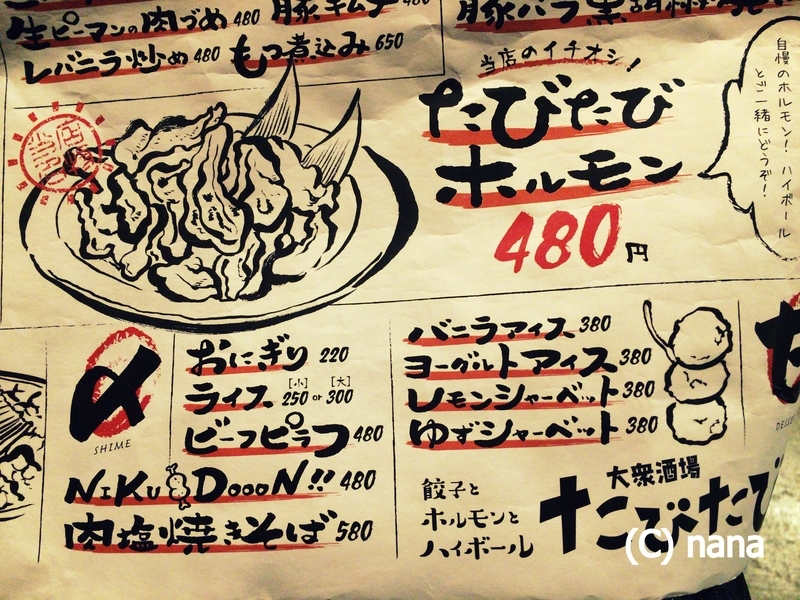 生ピーマンの肉づめ 480
豚キムチ 480
レバニラ炒め 480
もつ煮込み 650
豚バラ黒胡椒焼き
当店のイチオシ!
たびたび
ホルモン
480円
自慢のホルモン!ハイボール
とご一緒にどうぞ!
〆
SHIME
おにぎり 220
ライス [小]250 or [大]300
ビーフピラフ 480
NIKU DOOON!! 480
肉塩焼きそば 580
バニラアイス 380
ヨーグルトアイス 380
レモンシャーベット 380
ゆずシャーベット 380
餃子と
ホルモンと
ハイボール
大衆酒場
たびたび
(C) nana